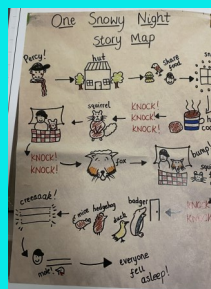 One Snowy Night
Story Map
Percy!
hut
share
food
sn
squirrel
KNOCK!
KNOCK!
KNOCK!
h
co
KNOCK!
KNOCK!
fox
bump
squ
creeeaak!
mice
hedgehog
duck
badger
KNOCK!
mole!
everyone
fell
asleep!